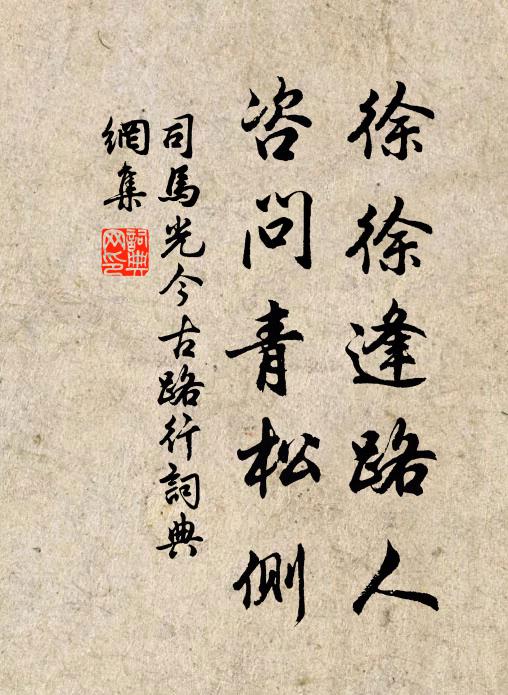 徐徐逢路人
咨問青松側
司馬光今古路行詞典
網集
詞典
网印